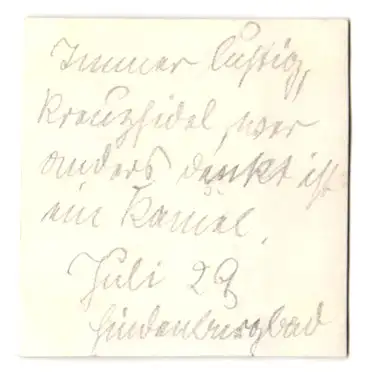 Immer lustig,
kreuzfidel, wer
anders denkt ist
ein Kamel.
Juli 29
Hindenburgbad